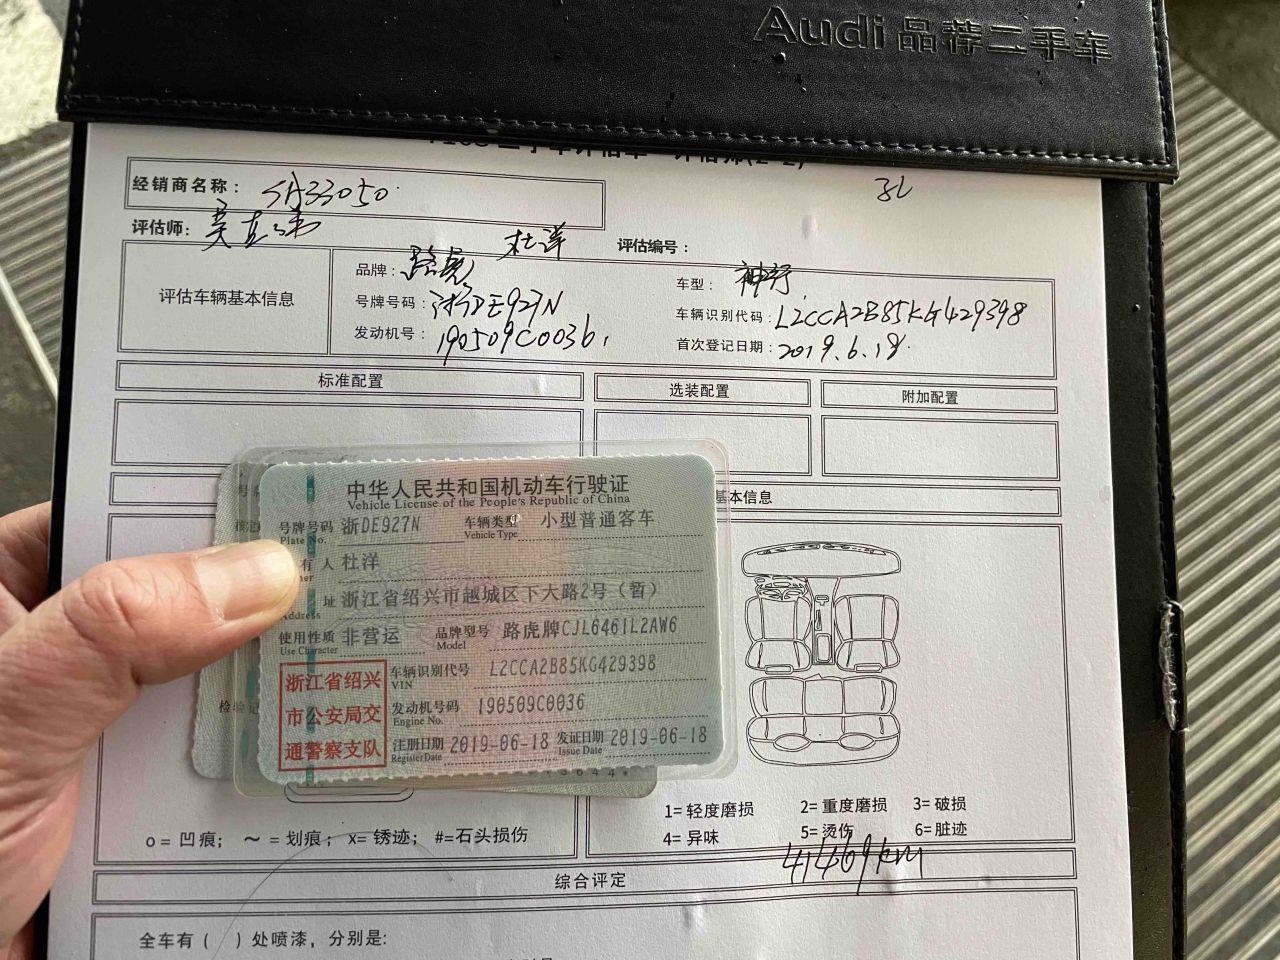 Audi 品荐二手车
经销商名称： SA33050
评估师：
杜洋
评估编号：
评估车辆基本信息
品牌： 路虎
车型： 神行
号牌号码： 浙DE927N
车辆识别代码： L2CCA2B85KG429398
发动机号： 190509C0036
首次登记日期： 2019.6.18
标准配置
选装配置
附加配置
基本信息
中华人民共和国机动车行驶证
Vehicle License of the People's Republic of China
号牌号码 浙DE927N 车辆类型 小型普通客车
Plate No. Vehicle Type
有人 杜洋
址 浙江省绍兴市越城区下大路2号（暂）
Address
使用性质 非营运 品牌型号 路虎牌CJL6461L2AW6
Use Character Model
浙江省绍兴
市公安局交
通警察支队
车辆识别代号 L2CCA2B85KG429398
VIN
发动机号码 190509C0036
Engine No.
注册日期 2019-06-18 发证日期 2019-06-18
Register Date Issue Date
o = 凹痕； ～ = 划痕； x= 锈迹； #=石头损伤
1= 轻度磨损 2= 重度磨损 3= 破损
4= 异味 5= 烫伤 6= 脏迹
综合评定
全车有（ ）处喷漆，分别是: